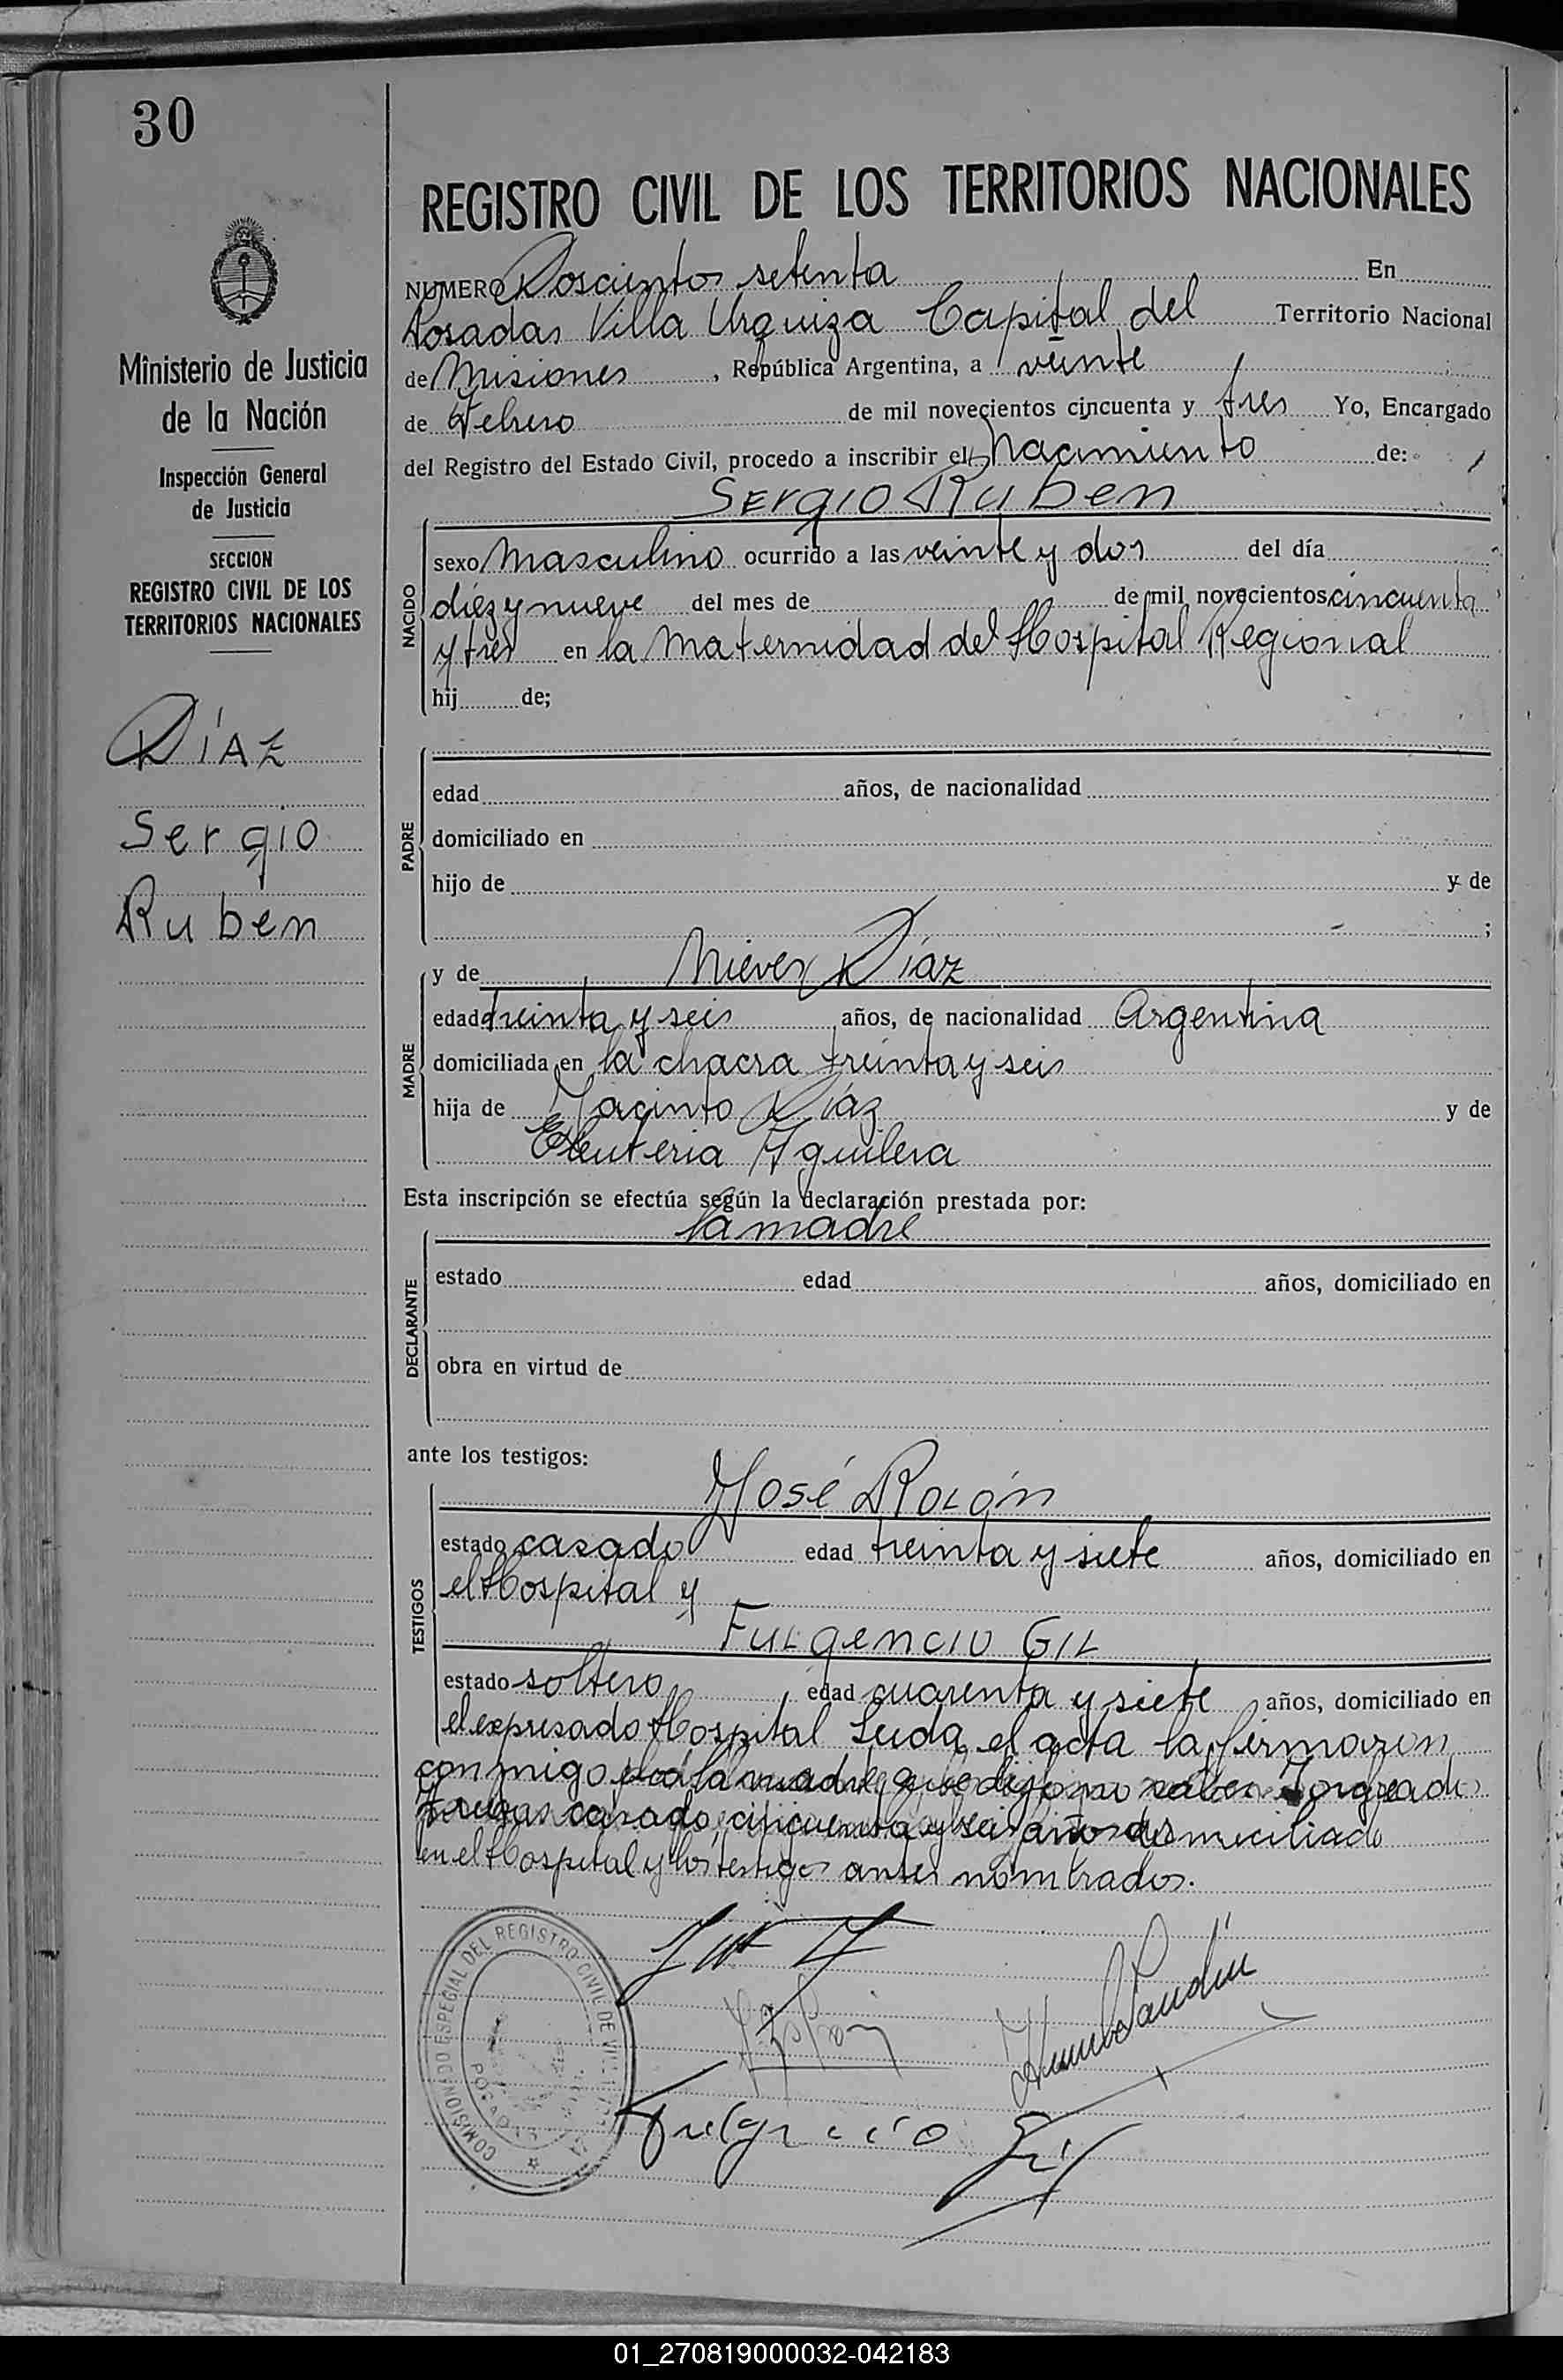 30
REGISTRO CIVIL DE LOS TERRITORIOS NACIONALES
NUMERO Doscientos setenta En
Posadas Villa Urquiza Capital del Territorio Nacional
de Misiones, República Argentina, a veinte
de Febrero de mil novecientos cincuenta y tres Yo, Encargado
del Registro del Estado Civil, procedo a inscribir el Nacimiento de:
Sergio Ruben
NACIDO
sexo Masculino ocurrido a las veinte y dos del día
diez y nueve del mes de de mil novecientos cincuenta
y tres en la Maternidad del Hospital Regional
hij de;
PADRE
edad años, de nacionalidad
domiciliado en
hijo de y de
;
MADRE
y de Nieves Díaz
edad treinta y seis años, de nacionalidad Argentina
domiciliada en la chacra treinta y seis
hija de Jacinto Díaz y de
Eleuteria Aguilera
Esta inscripción se efectúa según la declaración prestada por:
la madre
DECLARANTE
estado edad años, domiciliado en
obra en virtud de
ante los testigos:
José Rolón
TESTIGOS
estado casado edad treinta y siete años, domiciliado en
el Hospital y
Fulgencio Gil
estado soltero edad cuarenta y siete años, domiciliado en
el expresado Hospital Leida el acta la firmaron
conmigo la madre que dijo no saber
casado, cincuenta y seis años domiciliado
en el Hospital y los testigos antes nombrados.
COMISIONADO ESPECIAL DEL REGISTRO CIVIL DE
POSADAS
Fulgencio Gil
Ministerio de Justicia
de la Nación
Inspección General
de Justicia
SECCION
REGISTRO CIVIL DE LOS
TERRITORIOS NACIONALES
Díaz
Sergio
Ruben
01_270819000032-042183